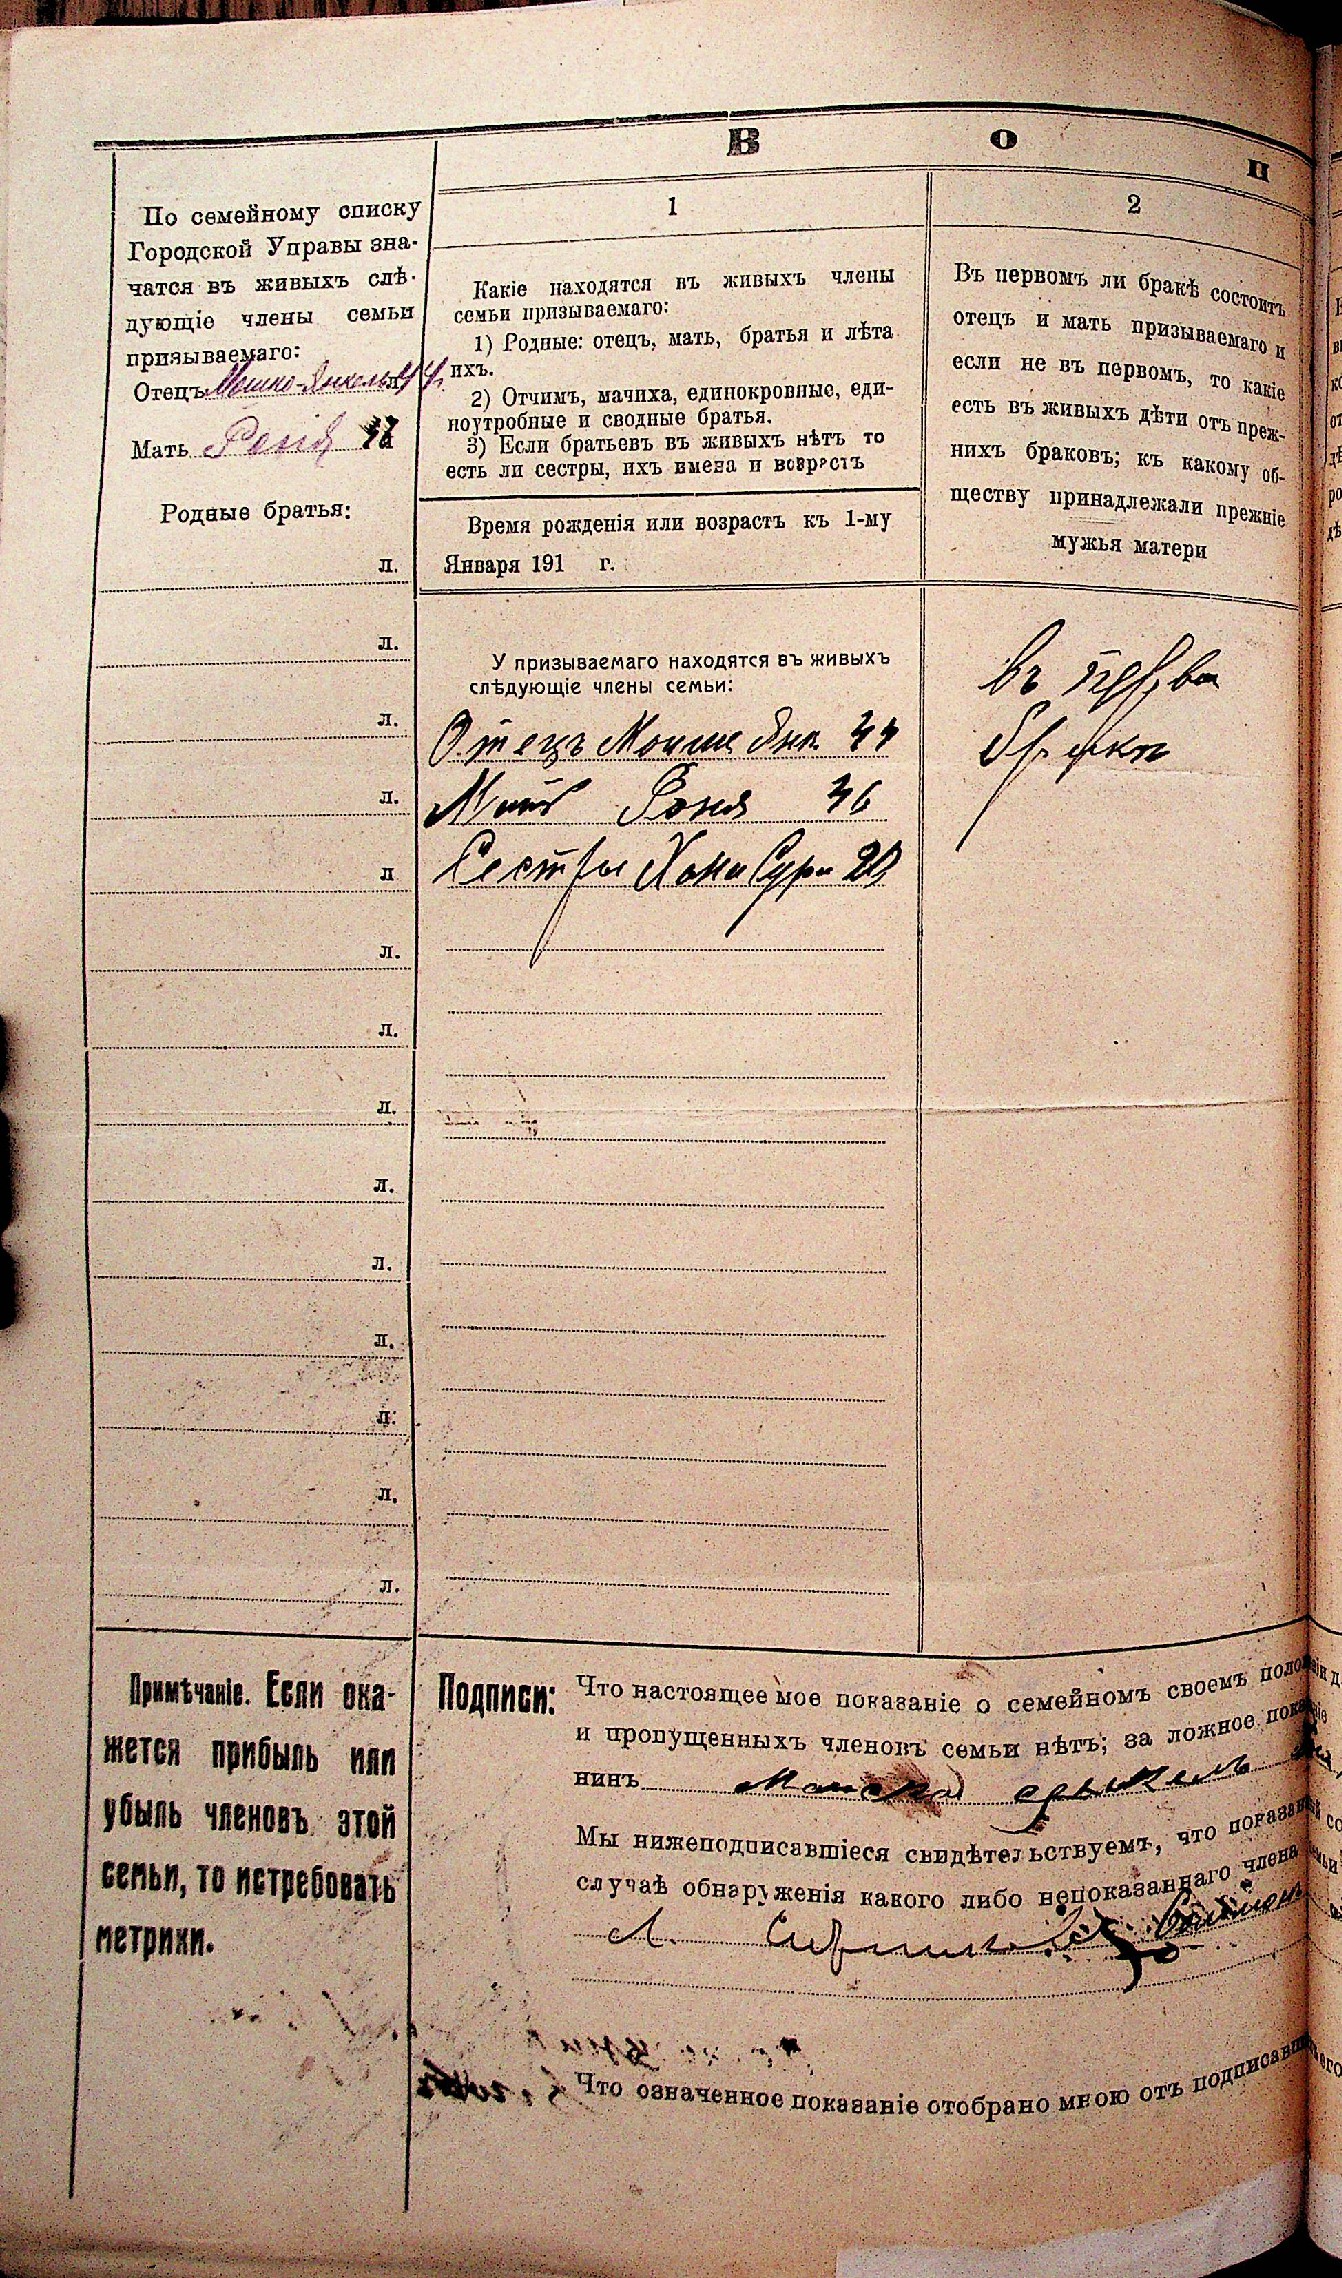 В о п
По семейному списку
Городской Управы зна-
чатся въ живыхъ слѣ-
дующіе члены семьи
призываемаго:
Отецъ Мошко-Янкель 44 л.
Мать Роня
Родные братья:
л.
л.
л.
л.
л
л.
л.
л.
л.
л.
л.
л.
л.
л.
1
Какіе находятся въ живыхъ члены
семьи призываемаго:
1) Родные: отецъ, мать, братья и лѣта
ихъ.
2) Отчимъ, мачиха, единокровные, еди-
ноутробные и сводные братья.
3) Если братьевъ въ живыхъ нѣтъ то
есть ли сестры, ихъ имена и возрастъ
Время рожденія или возрастъ къ 1-му
Января 191 г.
У призываемаго находятся въ живыхъ
слѣдующіе члены семьи:
Отецъ Мошко Янк. 44
Мать Роня 46
Сестры Хана Сура 20
2
Въ первомъ ли бракѣ состоитъ
отецъ и мать призываемаго и
если не въ первомъ, то какіе
есть въ живыхъ дѣти отъ преж-
нихъ браковъ; къ какому об-
ществу принадлежали прежніе
мужья матери
въ
Примѣчаніе. Если ока-
жется прибыль или
убыль членовъ этой
семьи, то истребовать
метрики.
Подписи: Что настоящее мое показаніе о семейномъ своемъ поло
и пропущенныхъ членовъ семьи нѣтъ; за ложное пока
нинъ
Мы нижеподписавшіеся свидѣтельствуемъ, что показан
случаѣ обнаруженія какого либо непоказаннаго члена
Л.
Что означенное показаніе отобрано мною отъ подписавш